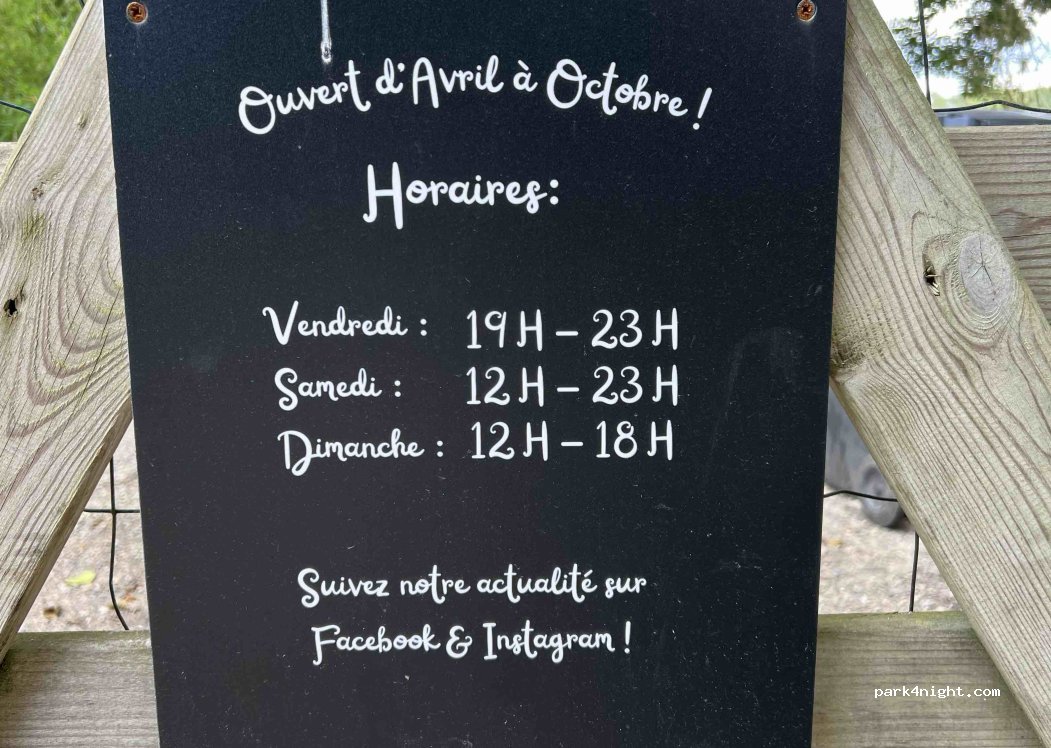 Ouvert d'Avril à Octobre !
Horaires:
Vendredi : 19 H – 23 H
Samedi : 12 H – 23 H
Dimanche : 12 H – 18 H
Suivez notre actualité sur
Facebook & Instagram !
park4night.com